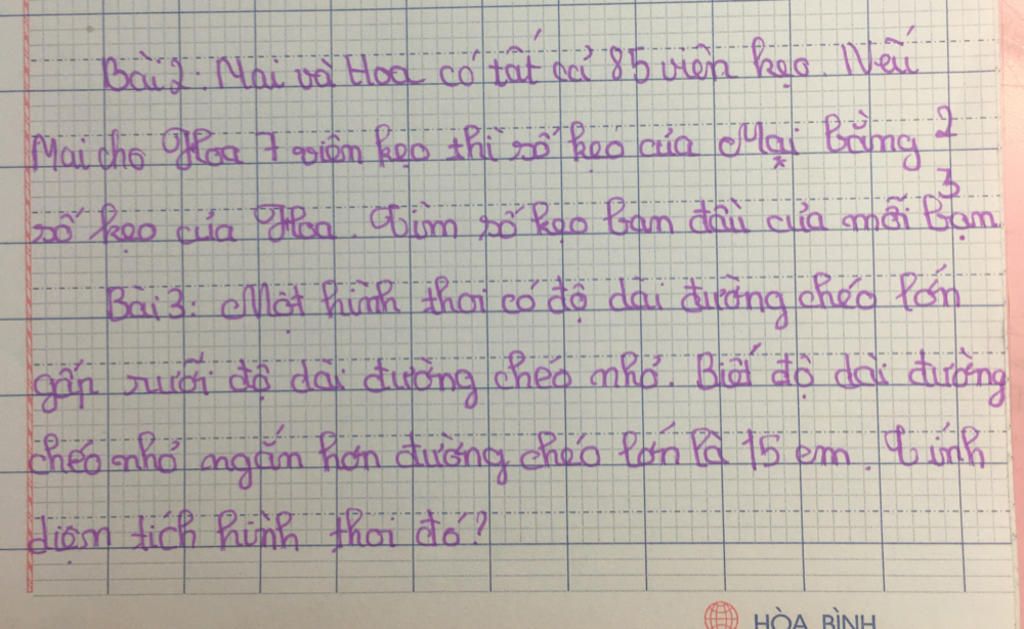 Bài 2: Mai và Hoa có tất cả 85 viên kẹo. Nếu
Mai cho Hoa 7 viên kẹo thì số kẹo của Mai bằng 2/3
số kẹo của Hoa. Tìm số kẹo ban đầu của mỗi bạn.
Bài 3: Một hình thoi có độ dài đường chéo lớn
gấp rưỡi độ dài đường chéo nhỏ. Biết độ dài đường
chéo nhỏ ngắn hơn đường chéo lớn là 15 cm. Tính
diện tích hình thoi đó?
HÒA BÌNH